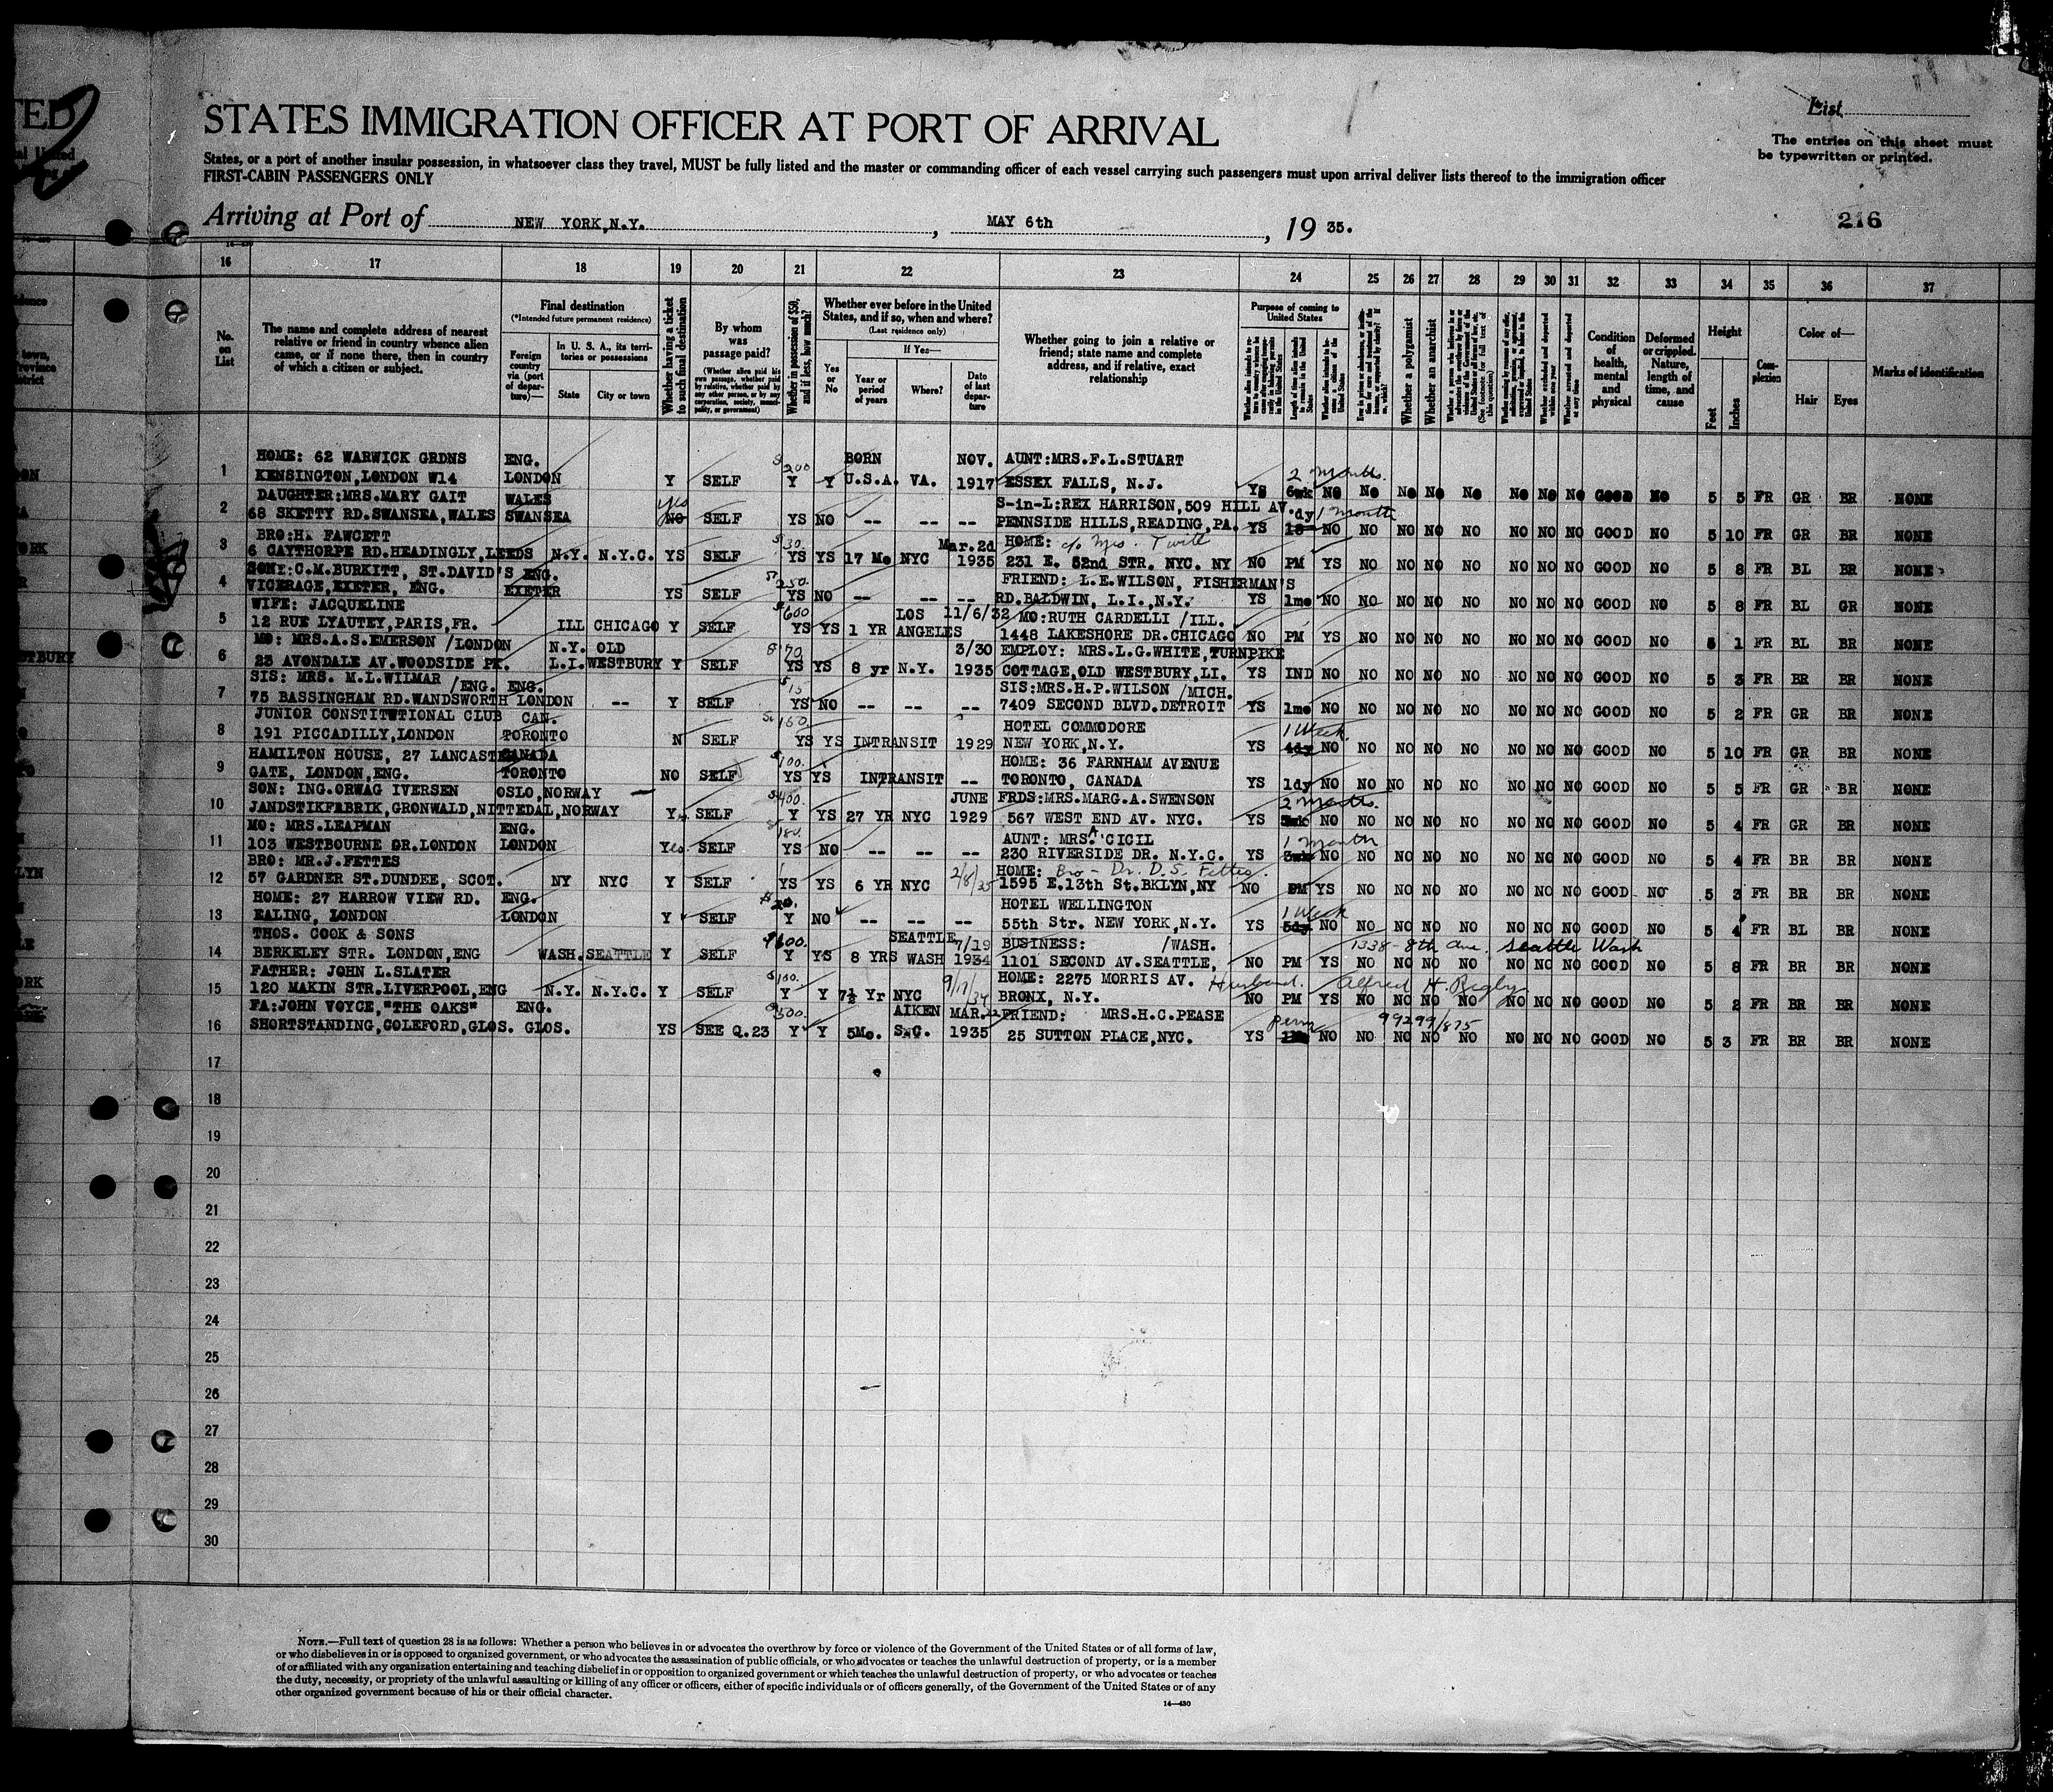 TED
List
STATES IMMIGRATION OFFICER AT PORT OF ARRIVAL
The entries on this sheet must
be typewritten or printed.
States, or a port of another insular possession, in whatsoever class they travel, MUST be fully listed and the master or commanding officer of each vessel carrying such passengers must upon arrival deliver lists thereof to the immigration officer
FIRST-CABIN PASSENGERS ONLY
Arriving at Port of NEW YORK,N.Y. , MAY 6th , 19 35.
216
16 17 18 19 20 21 22 23 24 25 26 27 28 29 30 31 32 33 34 35 36 37
No. on List
The name and complete address of nearest
relative or friend in country whence alien
came, or if none there, then in country
of which a citizen or subject.
Final destination
(*Intended future permanent residence)
Foreign country via (port of departure)—
In U. S. A., its territories or possessions
State
City or town
Whether having a ticket to such final destination
By whom was passage paid?
(Whether alien paid his own passage, whether paid by relative, whether paid by any other person, or by any corporation, society, municipality, or government)
Whether in possession of $50, and if less, how much?
Whether ever before in the United
States, and if so, when and where?
(Last residence only)
Yes or No
If Yes—
Year or period of years
Where?
Date of last departure
Whether going to join a relative or
friend; state name and complete
address, and if relative, exact
relationship
Purpose of coming to United States
Whether a polygamist
Whether an anarchist
Condition of health, mental and physical
Deformed or crippled. Nature, length of time, and cause
Height
Feet
Inches
Complexion
Color of—
Hair
Eyes
Marks of identification
HOME: 62 WARWICK GRDNS ENG. $200 BORN NOV. AUNT:MRS.F.L.STUART 2 months
1 KENSINGTON,LONDON W14 LONDON Y SELF Y Y U.S.A. VA. 1917 ESSEX FALLS, N.J. YS 6wk NO NO NO NO NO NO NO NO GOOD NO 5 5 FR GR BR NONE
DAUGHTER:MRS.MARY GAIT WALES yes S-in-L:REX HARRISON,509 HILL AV. dy 1 month
2 68 SKETTY RD.SWANSEA,WALES SWANSEA NO SELF YS NO -- -- -- PENNSIDE HILLS,READING,PA. YS 18 NO NO NO NO NO NO NO NO GOOD NO 5 10 FR GR BR NONE
BRO:H. FAWCETT $30 Mar.2d HOME: c/o Mrs.
3 6 CAYTHORPE RD.HEADINGLY,LEEDS N.Y. N.Y.C. YS SELF YS YS 17 Mo NYC 1935 231 E. 52nd STR. NYC. NY NO PM YS NO NO NO NO NO NO NO GOOD NO 5 8 FR BL BR NONE
SONE:C.M.BURKITT, ST.DAVID'S ENG. $250. FRIEND: L.E.WILSON, FISHERMAN'S
4 VICERAGE,EXETER, ENG. EXETER YS SELF YS NO -- -- -- RD.BALDWIN, L.I.,N.Y. YS 1mo NO NO NO NO NO NO NO NO GOOD NO 5 8 FR BL GR NONE
WIFE: JACQUELINE $600 LOS 11/6/32 MO:RUTH CARDELLI /ILL.
5 12 RUE LYAUTEY,PARIS,FR. ILL CHICAGO Y SELF YS YS 1 YR ANGELES 1448 LAKESHORE DR.CHICAGO NO PM YS NO NO NO NO NO NO NO GOOD NO 6 1 FR BL BR NONE
MO: MRS.A.S.EMERSON /LONDON N.Y. OLD $70 3/30 EMPLOY: MRS.L.G.WHITE,TURNPIKE
6 23 AVONDALE AV.WOODSIDE PK. L.I. WESTBURY Y SELF YS YS 8 yr N.Y. 1935 COTTAGE,OLD WESTBURY,LI. YS IND NO NO NO NO NO NO NO NO GOOD NO 5 3 FR BR BR NONE
SIS: MRS. M.L.WILMAR /ENG. ENG. $15 SIS:MRS.H.P.WILSON /MICH.
7 75 BASSINGHAM RD.WANDSWORTH LONDON -- Y SELF YS NO -- -- -- 7409 SECOND BLVD.DETROIT YS 1mo NO NO NO NO NO NO NO NO GOOD NO 5 2 FR GR BR NONE
JUNIOR CONSTITUTIONAL CLUB CAN. $150. HOTEL COMMODORE 1 Week
8 191 PICCADILLY,LONDON TORONTO N SELF YS YS INTRANSIT 1929 NEW YORK,N.Y. YS 4dy NO NO NO NO NO NO NO NO GOOD NO 5 10 FR GR BR NONE
HAMILTON HOUSE, 27 LANCAST CANADA $100. HOME: 36 FARNHAM AVENUE
9 GATE, LONDON,ENG. TORONTO NO SELF YS YS INTRANSIT -- TORONTO, CANADA YS 1dy NO NO NO NO NO NO NO NO GOOD NO 5 5 FR GR BR NONE
SON: ING.ORWAG IVERSEN OSLO,NORWAY $400. JUNE FRDS:MRS.MARG.A.SWENSON 2 months.
10 JANDSTIKFABRIK,GRONWALD,NITTEDAL,NORWAY Y SELF Y YS 27 YR NYC 1929 567 WEST END AV. NYC. YS NO NO NO NO NO NO NO NO GOOD NO 5 4 FR GR BR NONE
MO: MRS.LEAPMAN ENG. 180. AUNT: MRS. A CICIL 1 month
11 103 WESTBOURNE GR.LONDON LONDON Yes. SELF YS NO -- -- -- 230 RIVERSIDE DR. N.Y.C. YS 3wk NO NO NO NO NO NO NO NO GOOD NO 5 4 FR BR BR NONE
BRO: MR.J.FETTES 2/8/35 HOME: Bro - Dr. D.S. Fettes.
12 57 GARDNER ST.DUNDEE, SCOT. NY NYC Y SELF YS YS 6 YR NYC 1595 E.13th St.BKLYN,NY NO PM YS NO NO NO NO NO NO NO GOOD NO 5 3 FR BR BR NONE
HOME: 27 HARROW VIEW RD. ENG. $20. HOTEL WELLINGTON 1 Week
13 EALING, LONDON LONDON Y SELF Y NO -- -- -- 55th Str. NEW YORK,N.Y. YS 5dy NO NO NO NO NO NO NO NO GOOD NO 5 4 FR BL BR NONE
THOS. COOK & SONS $600. SEATTLE 7/19 BUSINESS: /WASH. 1338-8th Ave. Seattle Wash
14 BERKELEY STR. LONDON,ENG WASH. SEATTLE Y SELF Y YS 8 YRS WASH 1934 1101 SECOND AV.SEATTLE, NO PM YS NO NO NO NO NO NO NO GOOD NO 5 8 FR BR BR NONE
FATHER: JOHN L.SLATER $100. 9/17/34 HOME: 2275 MORRIS AV. Husband. Alfred H. Rigby
15 120 MAKIN STR.LIVERPOOL,ENG N.Y. N.Y.C. Y SELF Y Y 7½ Yr NYC BRONX, N.Y. NO PM YS NO NO NO NO NO NO NO GOOD NO 5 2 FR BR BR NONE
FA:JOHN VOYCE,"THE OAKS" ENG. $500. AIKEN MAR. FRIEND: MRS.H.C.PEASE perm 99299/875
16 SHORTSTANDING,COLEFORD,GLOS. GLOS. YS SEE Q.23 Y Y 5Mo. S.C. 1935 25 SUTTON PLACE,NYC. YS NO NO NO NO NO NO NO NO GOOD NO 5 3 FR BR BR NONE
17
18
19
20
21
22
23
24
25
26
27
28
29
30
NOTE.—Full text of question 28 is as follows: Whether a person who believes in or advocates the overthrow by force or violence of the Government of the United States or of all forms of law,
or who disbelieves in or is opposed to organized government, or who advocates the assassination of public officials, or who advocates or teaches the unlawful destruction of property, or is a member
of or affiliated with any organization entertaining and teaching disbelief in or opposition to organized government or which teaches the unlawful destruction of property, or who advocates or teaches
the duty, necessity, or propriety of the unlawful assaulting or killing of any officer or officers, either of specific individuals or of officers generally, of the Government of the United States or of any
other organized government because of his or their official character.
14—430